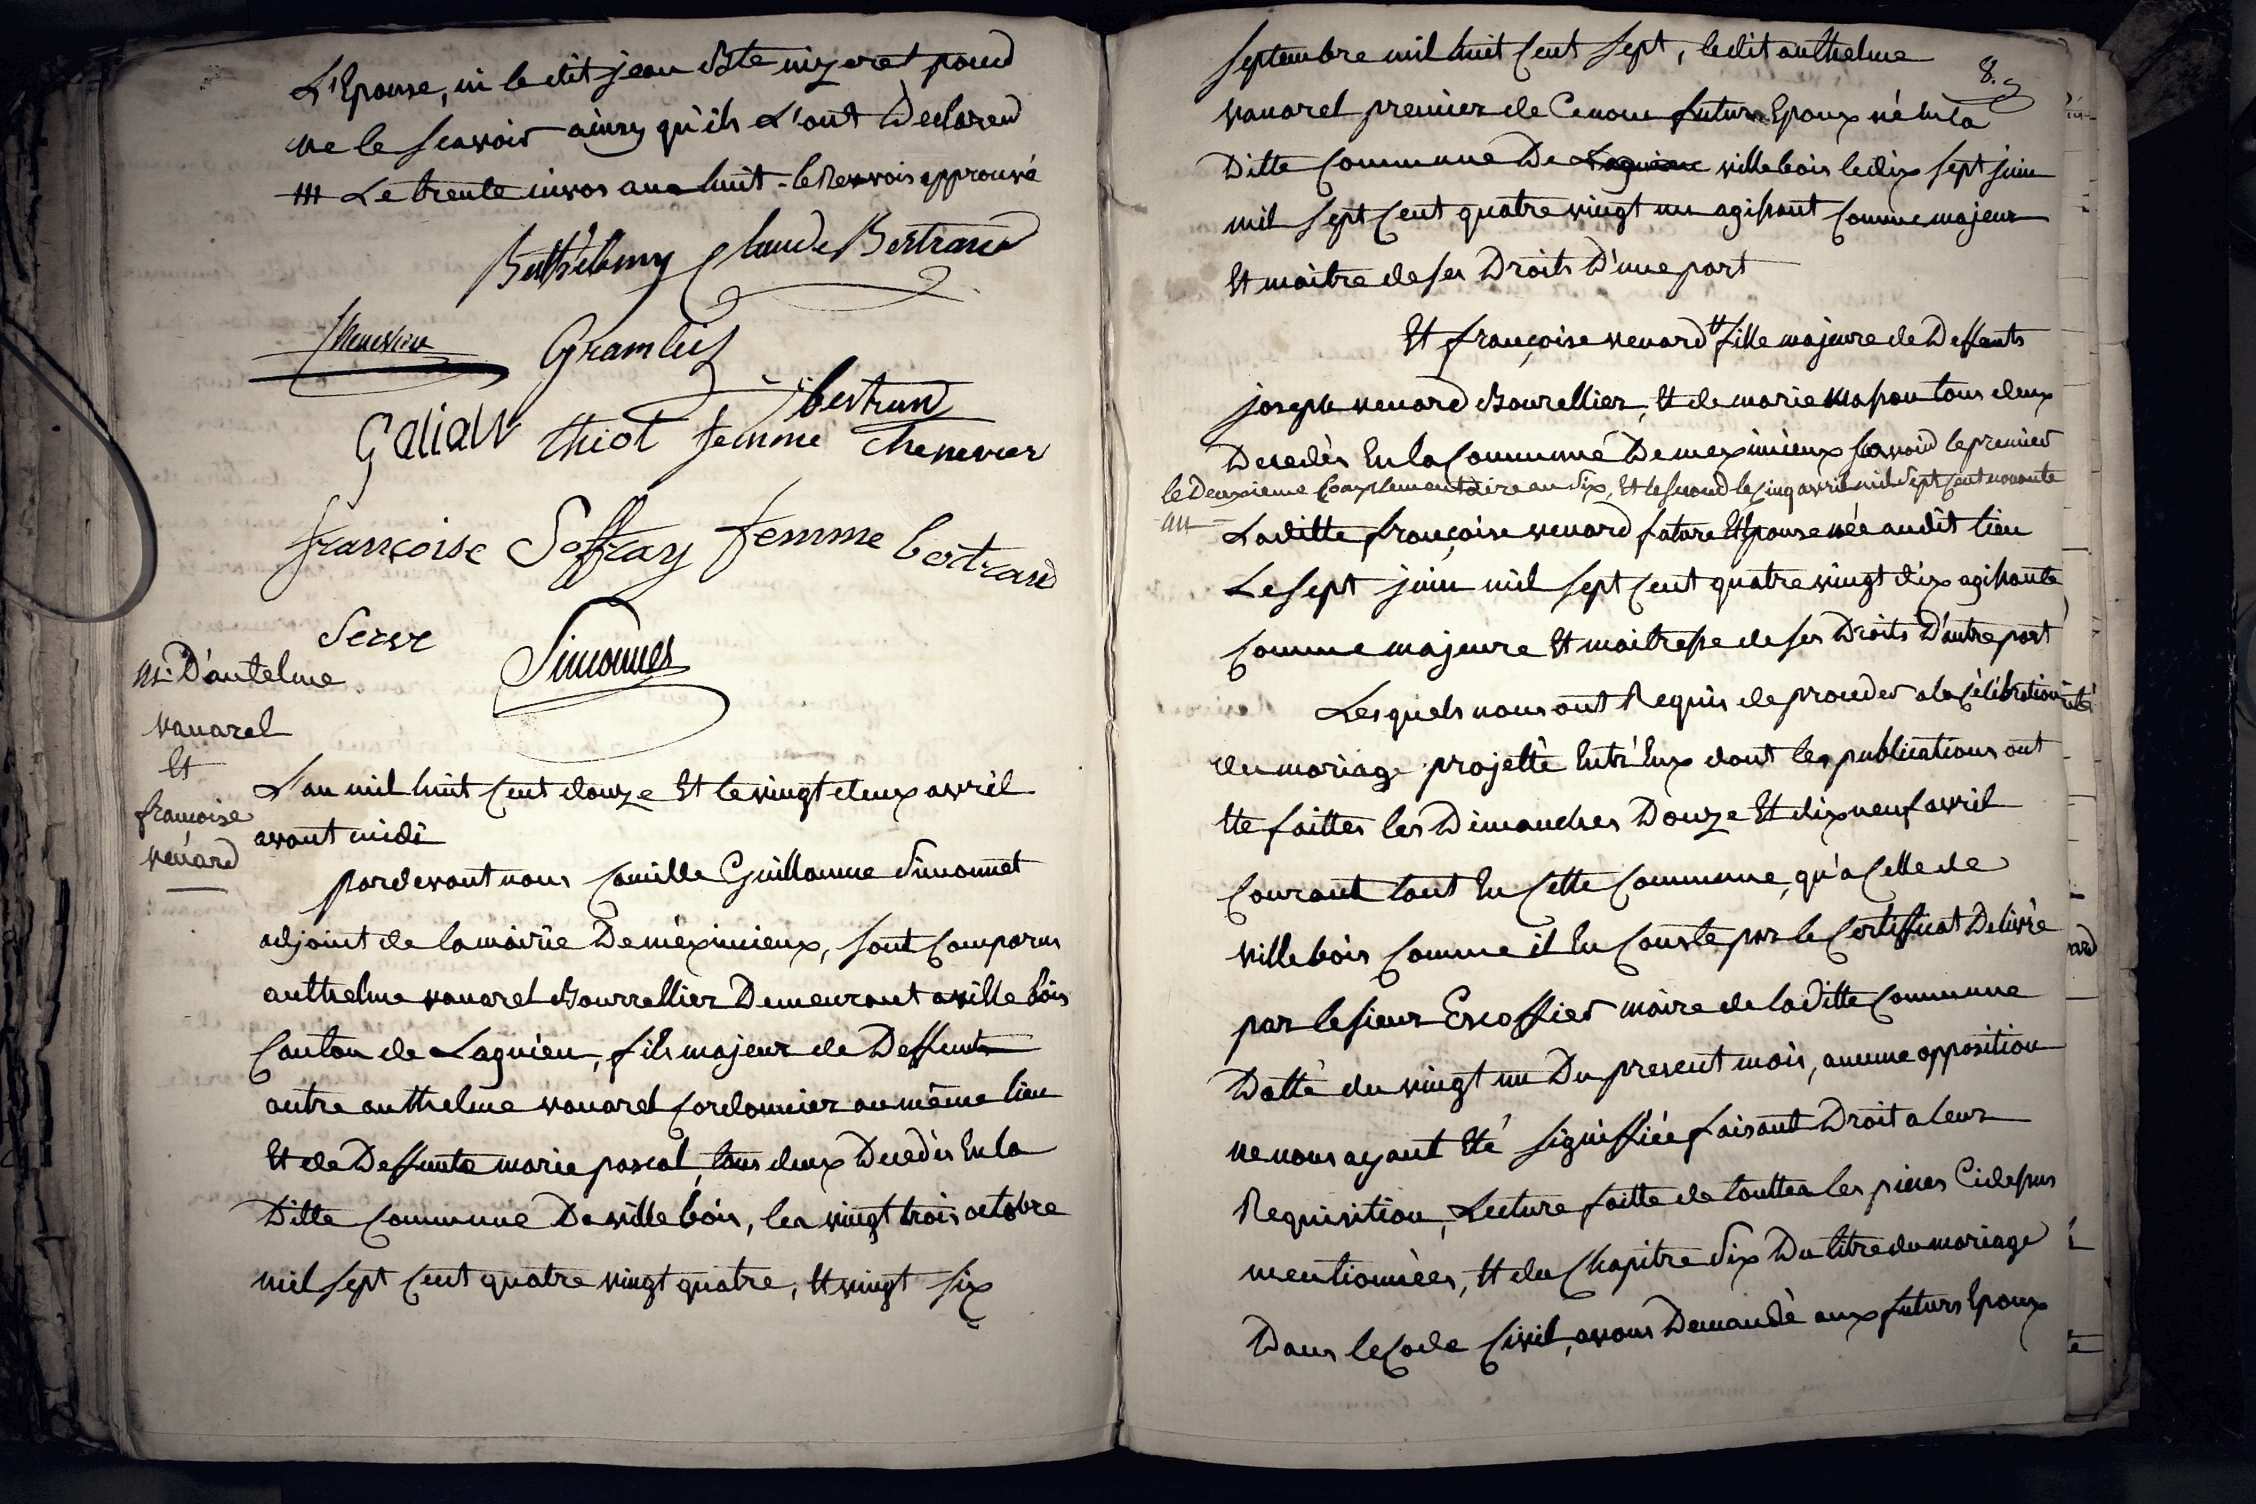 L'Epouse, ni le dit jean Bte nizeret pour
ne le scavoir ainsy qu'ils L'ont Declared
Le trente nivos an huit - le Renvois approuvé
Berthelemy Claude Bertrand
Chenevier Grambis
bertrand
Galian thiot femme Chenevier
françoise Soffray femme bertrand
Serve Simonnet
M. D'antelme
vanarel
Et
françoise
venard
L'an mil huit Cent douze Et le vingt deux avril
avant midi
pardevant nous Camille Guillaume Simonnet
adjoint de la mairie De meximieux, sont Comparus
anthelme vanarel Bourrellier Demeurant a ville bois
Canton de Lagnieu, fils majeur de Deffunts
autre anthelme vanarel Cordonnier au même lieu
Et de Deffunte marie pascal, tous deux Decedés En la
Ditte Commune De ville bois, les vingt trois octobre
mil sept Cent quatre vingt quatre, Et vingt six
8.
Septembre mil huit Cent Sept, ledit anthelme
vanarel premier de Ce nom futur Epoux né en la
Ditte Commune De Lagnieu ville bois le dix sept juin
mil sept Cent quatre vingt un agissant Comme majeur
Et maitre de ses Droits D'une part
Et françoise venard fille majeure de Deffunts
joseph venard Bourellier, Et de marie Mason tous deux
Decedès En la Commune De meximieux scavoir le premier
le Deuxieme Complementaire an Six, Et le second le Cinq avril mil Sept Cent nonante
un -
Laditte françoise venard future Epouse née au dit lieu
Le sept juin mil sept Cent quatre vingt dix agissante
Comme majeure Et maitresse de ses Droits D'autre part
Lesquels nous ont Requis de proceder a la Célébration
du mariage projetté Entr'Eux dont les publications ont
été faittes les Dimanches Douze Et dix neuf avril
Courant tant En Cette Commune, qu'a Celle de
ville bois Comme il En Conste par le Certifficat Delivré
par le sieur Escoffier maire de laditte Commune
Datté du vingt un Du present mois, aucune opposition
ne nous ayant Eté signiffiée faisant Droit a leur
Requisition, Lecture faitte de touttes les pieces Cidessus
mentionnées, Et du Chapitre Six Du titre du mariage
Dans le Code Civil, avons Demandé aux futurs Epoux